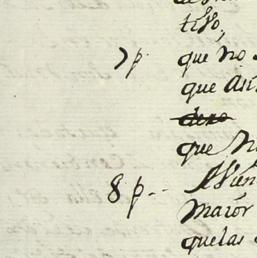 tivo,
7 p. que no
que asi
dexo
que no
8 p.- - Si en
maior
quelas